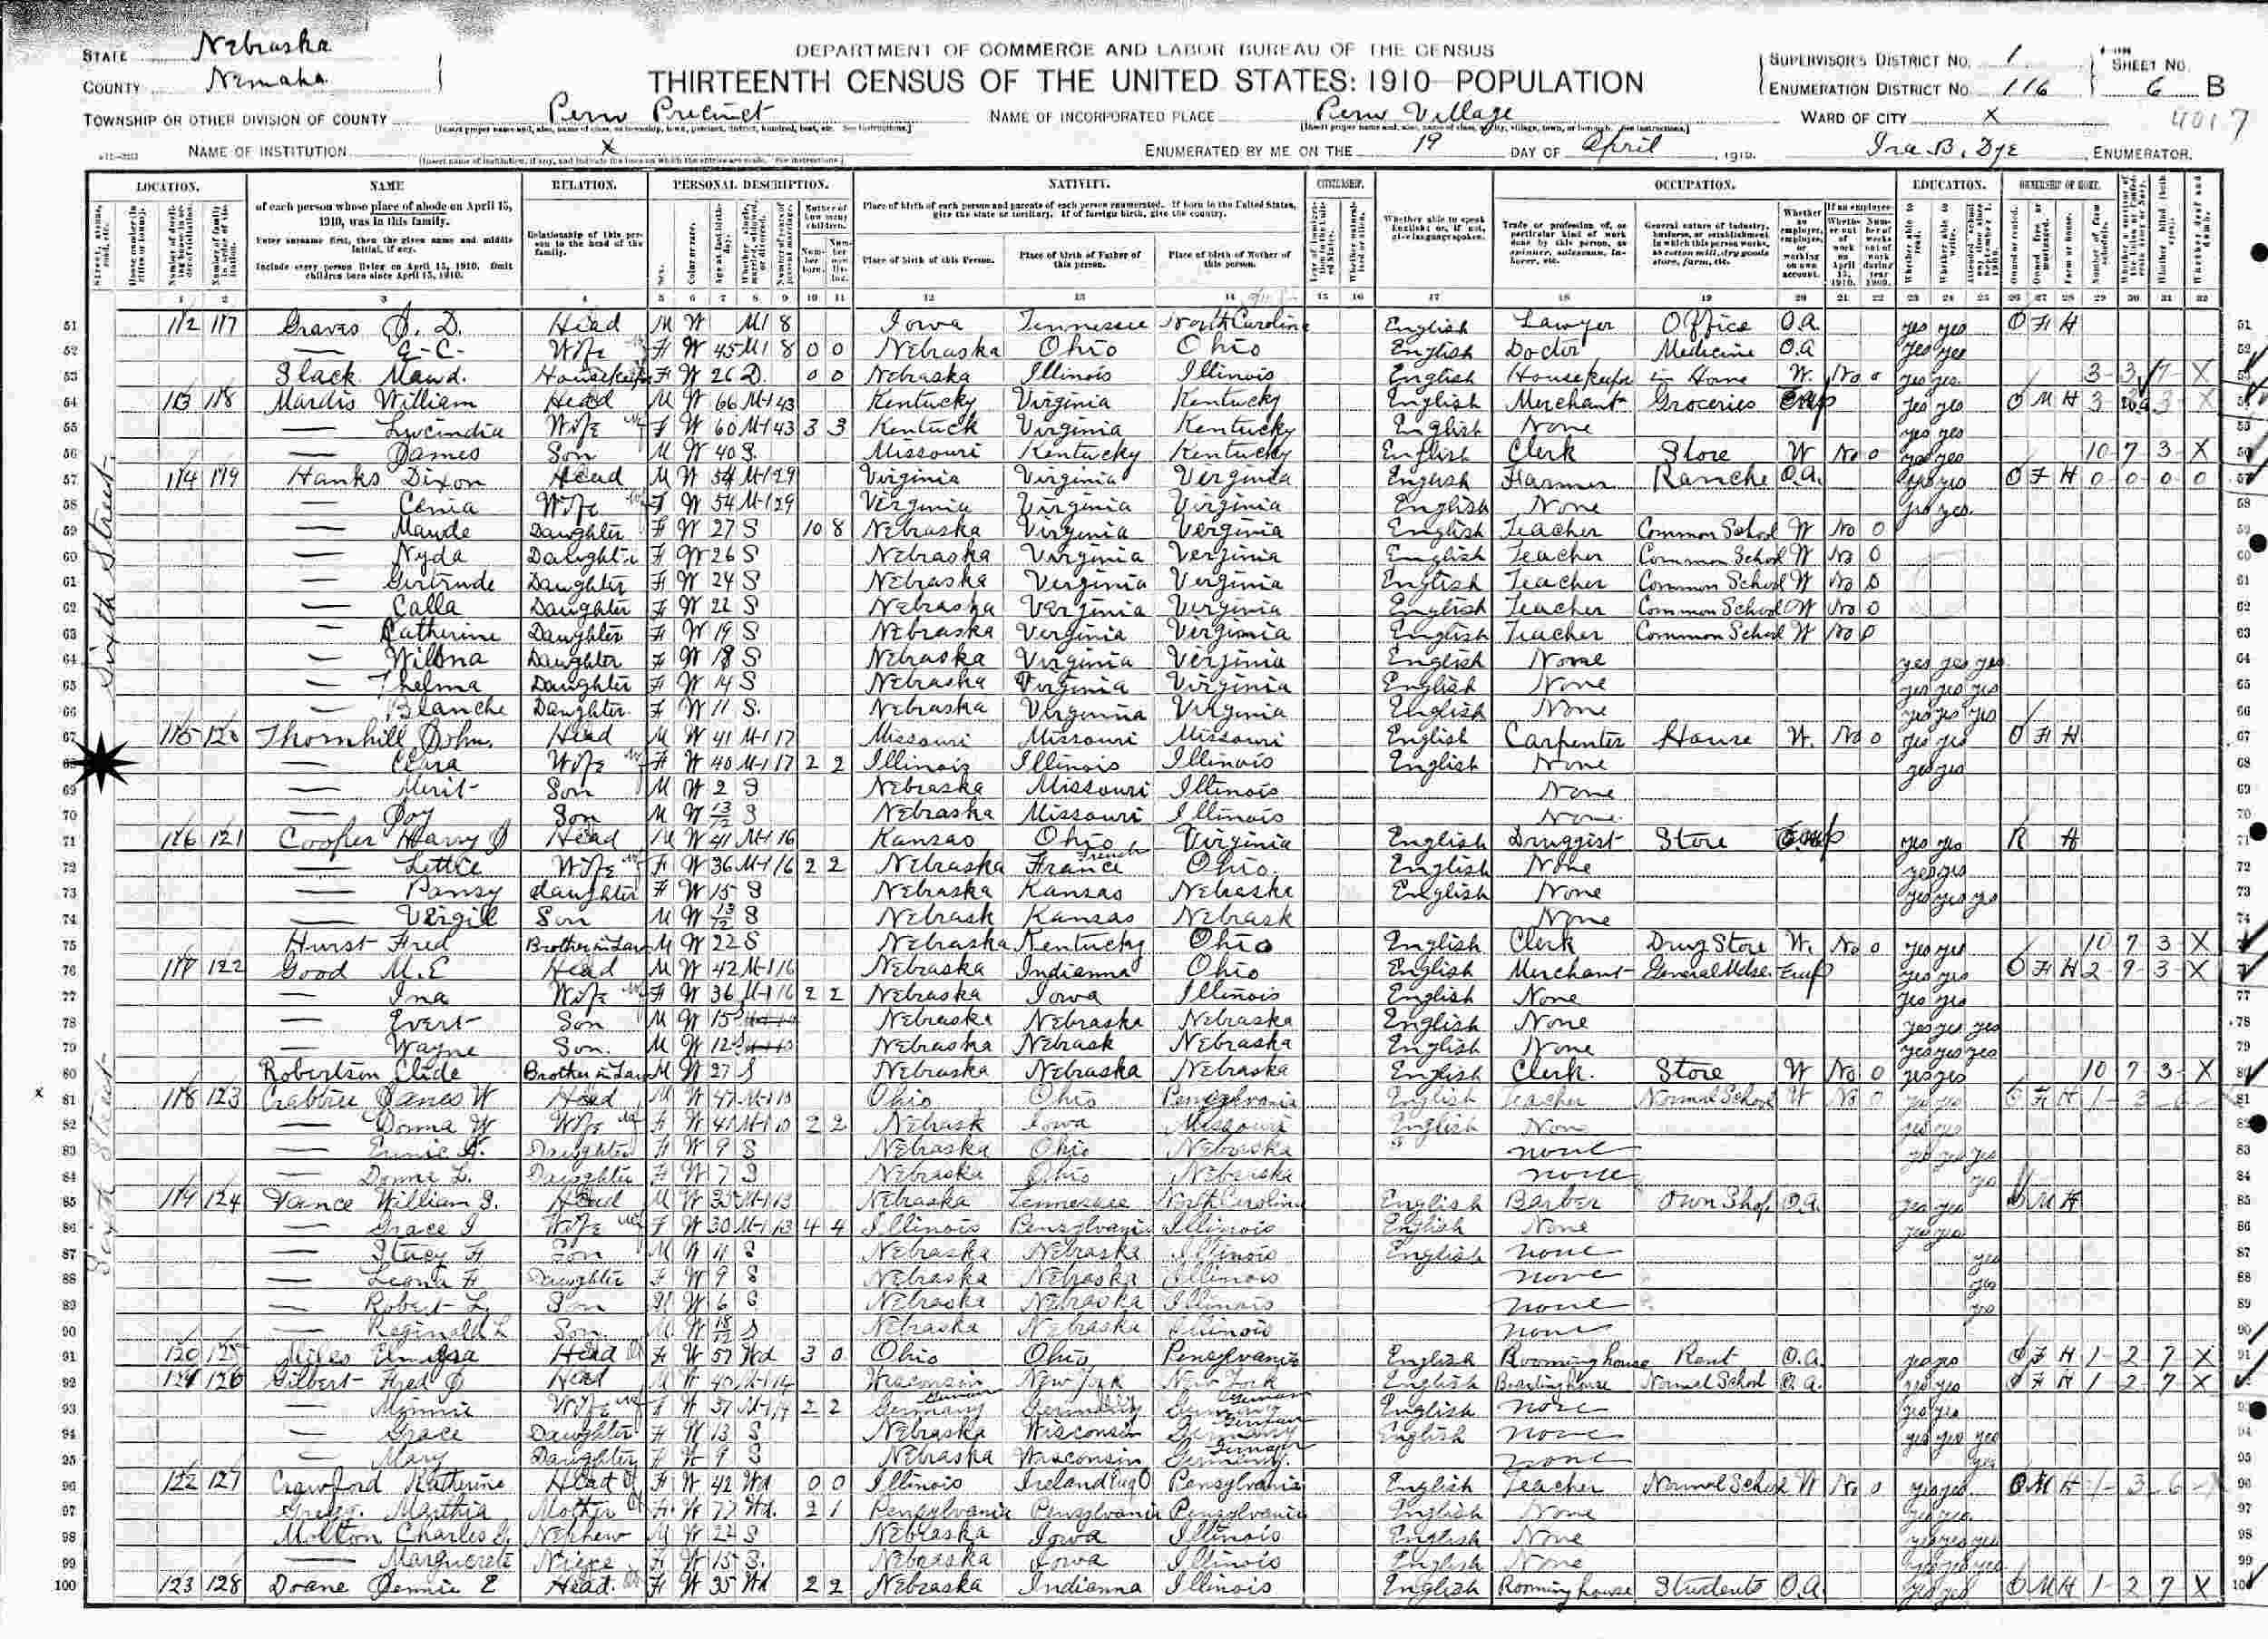 STATE Nebraska
COUNTY Nemaha
DEPARTMENT OF COMMERCE AND LABOR BUREAU OF THE CENSUS
THIRTEENTH CENSUS OF THE UNITED STATES: 1910 POPULATION
SUPERVISOR'S DISTRICT No. 1
ENUMERATION DISTRICT No. 116
SHEET No. 6 B
4017
TOWNSHIP OR OTHER DIVISION OF COUNTY Peru Precinct
NAME OF INCORPORATED PLACE Peru Village
WARD OF CITY X
NAME OF INSTITUTION X
ENUMERATED BY ME ON THE 19 DAY OF April, 1910. Ira B. Dye, ENUMERATOR.
LOCATION. NAME RELATION. PERSONAL DESCRIPTION. NATIVITY. CITIZENSHIP. OCCUPATION. EDUCATION. OWNERSHIP OF HOME.
of each person whose place of abode on April 15, 1910, was in this family.
Enter surname first, then the given name and middle initial, if any.
Include every person living on April 15, 1910. Omit children born since April 15, 1910.
Relationship of this person to the head of the family.
Place of birth of each person and parents of each person enumerated. If born in the United States, give the state or territory. If of foreign birth, give the country.
Place of birth of this Person. Place of birth of Father of this person. Place of birth of Mother of this person.
1 2 3 4 5 6 7 8 9 10 11 12 13 14 15 16 17 18 19 20 21 22 23 24 25 26 27 28 29 30 31 32
Sixth Street
51 112 117 Graves J. D. Head M W M1 8 Iowa Tennessee North Carolina English Lawyer Office O.A. yes yes O F H 51
52 — G. C. Wife F W 45 M1 8 0 0 Nebraska Ohio Ohio English Doctor Medicine O.A yes yes 52
53 Slack Maud. Housekeeper F W 26 D. 0 0 Nebraska Illinois Illinois English Housekeeper in Home W. No 0 yes yes 3-3 7-X
54 113 118 Mardis William Head M W 66 M1 43 Kentucky Virginia Kentucky English Merchant Groceries Emp yes yes O M H
55 — Lucindia Wife F W 60 M1 43 3 3 Kentuck Virginia Kentucky English None yes yes 55
56 — James Son M W 40 S. Missouri Kentucky Kentucky English Clerk Store W No 0 yes yes 10 7 3-X
57 114 119 Hanks Dixon Head M W 54 M1 29 Virginia Virginia Virginia English Farmer Ranche O.A. yes yes O F H 0-0-0-0
58 — Cenia Wife F W 54 M1 29 Virginia Virginia Virginia English None yes yes 58
59 — Maude Daughter F W 27 S 10 8 Nebraska Virginia Virginia English Teacher Common School W No 0 59
60 — Nyda Daughter F W 26 S Nebraska Virginia Virginia English Teacher Common School W No 0 60
61 — Gertrude Daughter F W 24 S Nebraska Virginia Virginia English Teacher Common School W No 0 61
62 — Calla Daughter F W 22 S Nebraska Virginia Virginia English Teacher Common School W No 0 62
63 — Catherine Daughter F W 19 S Nebraska Virginia Virginia English Teacher Common School W No 0 63
64 — Wilona Daughter F W 18 S Nebraska Virginia Virginia English None yes yes yes 64
65 — Thelma Daughter F W 14 S Nebraska Virginia Virginia English None yes yes yes 65
66 — Blanche Daughter F W 11 S. Nebraska Virginia Virginia English None yes yes yes 66
67 115 120 Thornhill John. Head M W 41 M1 17 Missouri Missouri Missouri English Carpenter House W. No 0 yes yes O F H 67
68 — Clara Wife F W 40 M1 17 2 2 Illinois Illinois Illinois English None yes yes 68
69 — Merit Son M W 2 S Nebraska Missouri Illinois None 69
70 — Son M W 13/12 S Nebraska Missouri Illinois None 70
71 116 121 Cooper Harry J Head M W 41 M1 16 Kansas Ohio Virginia English Druggist Store Emp yes yes R H 71
72 — Lettie Wife F W 36 M1 16 2 2 Nebraska France French Ohio English None yes yes 72
73 — Pansy daughter F W 15 S Nebraska Kansas Nebraska English None yes yes yes 73
74 — Virgill Son M W 13/12 S Nebrask Kansas Nebrask None 74
75 Hurst Fred Brother in Law M W 22 S Nebraska Kentucky Ohio English Clerk Drug Store W. No 0 yes yes 10 7 3 X
76 117 122 Good M. E Head M W 42 M1 16 Nebraska Indianna Ohio English Merchant General Mdse. Emp yes yes O F H 2-9-3-X
77 — Ina Wife F W 36 M1 16 2 2 Nebraska Iowa Illinois English None yes yes 77
78 — Evert Son M W 15 S Nebraska Nebraska Nebraska English None yes yes yes 78
79 — Wayne Son. M W 12 S Nebraska Nebrask Nebraska English None yes yes yes 79
80 Robertson Clide Brother in Law M W 27 S Nebraska Nebraska Nebraska English Clerk. Store W No 0 yes yes 10 7 3-X
81 118 123 Crabtree James W Head M W 47 M1 10 Ohio Ohio Pensylvania English Teacher Normal School W No 0 yes yes O F H 1-3-6- 81
82 — Donna W Wife F W 41 M1 10 2 2 Nebrask Iowa Missouri English Non yes yes
83 — Eunice A. Daughter F W 9 S Nebraska Ohio Nebraska " none yes yes yes 83
84 — Donne L. Daughter F W 7 S Nebraska Ohio Nebraska none yes 84
85 119 124 Vance William S. Head M W 35 M1 13 Nebraska Tennessee North Carolina English Barber Own Shop O.A. yes yes O M H 85
86 — Grace I Wife F W 30 M1 13 4 4 Illinois Pensylvania Illinois English None yes yes 86
87 — Stacy F Son M W 11 S Nebraska Nebraska Illinois English none yes 87
88 — Leona F Daughter F W 9 S Nebraska Nebraska Illinois none yes 88
89 — Robert L. Son M W 6 S Nebraska Nebraska Illinois none yes 89
90 — Reginald L Son M W 18/12 S Nebraska Nebraska Illinois none 90
91 120 125 Miles Head F W 57 Wd 3 0 Ohio Ohio Pensylvania English Rooming house Rent O.A. yes yes O F H 1-2-7-X
92 121 126 Gilbert Fred J Head M W 40 M1 14 Wisconsin New York New York English Boarding house Normal School O.A. yes yes O F H 1 2-7-X
93 — Minnie Wife F W 37 M1 14 2 2 Germany German Germany Germany German English none yes yes
94 — Grace Daughter F W 13 S Nebraska Wisconsin Germany German English none yes yes yes 94
95 — Mary Daughter F W 9 S Nebraska Wisconsin Germany. German none yes 95
96 122 127 Crawford Katherine Head F W 42 Wd 0 0 Illinois Ireland Pensylvania English Teacher Normal School W No 0 yes yes O M H 1-3-6 96
97 Gregg. Marthia Mother F W 77 Wd. 2 1 Pensylvania Pensylvania Pensylvania English None yes yes 97
98 Molton Charles Nephew M W 22 S Nebraska Iowa Illinois English None yes yes yes 98
99 — Marguerete Niece F W 15 S. Nebraska Iowa Illinois English None yes yes yes 99
100 123 128 Doane Jennie E Head. F W 35 Wd 2 2 Nebraska Indianna Illinois English Rooming house Students O.A. yes yes O M H 1-2 7 X